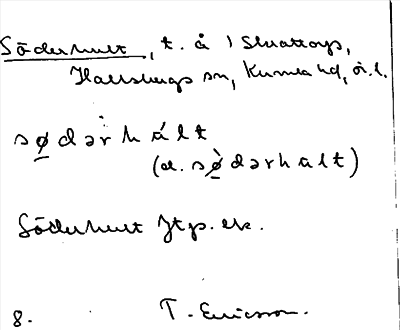 Söderhult, t. å 1 Skrattorp,
Hallsbergs sn, Kumla hd, ö.l.
sødərhált
(el. sø̀dərhalt)
Söderhult Jtp. ek.
8. T. Ericsson.